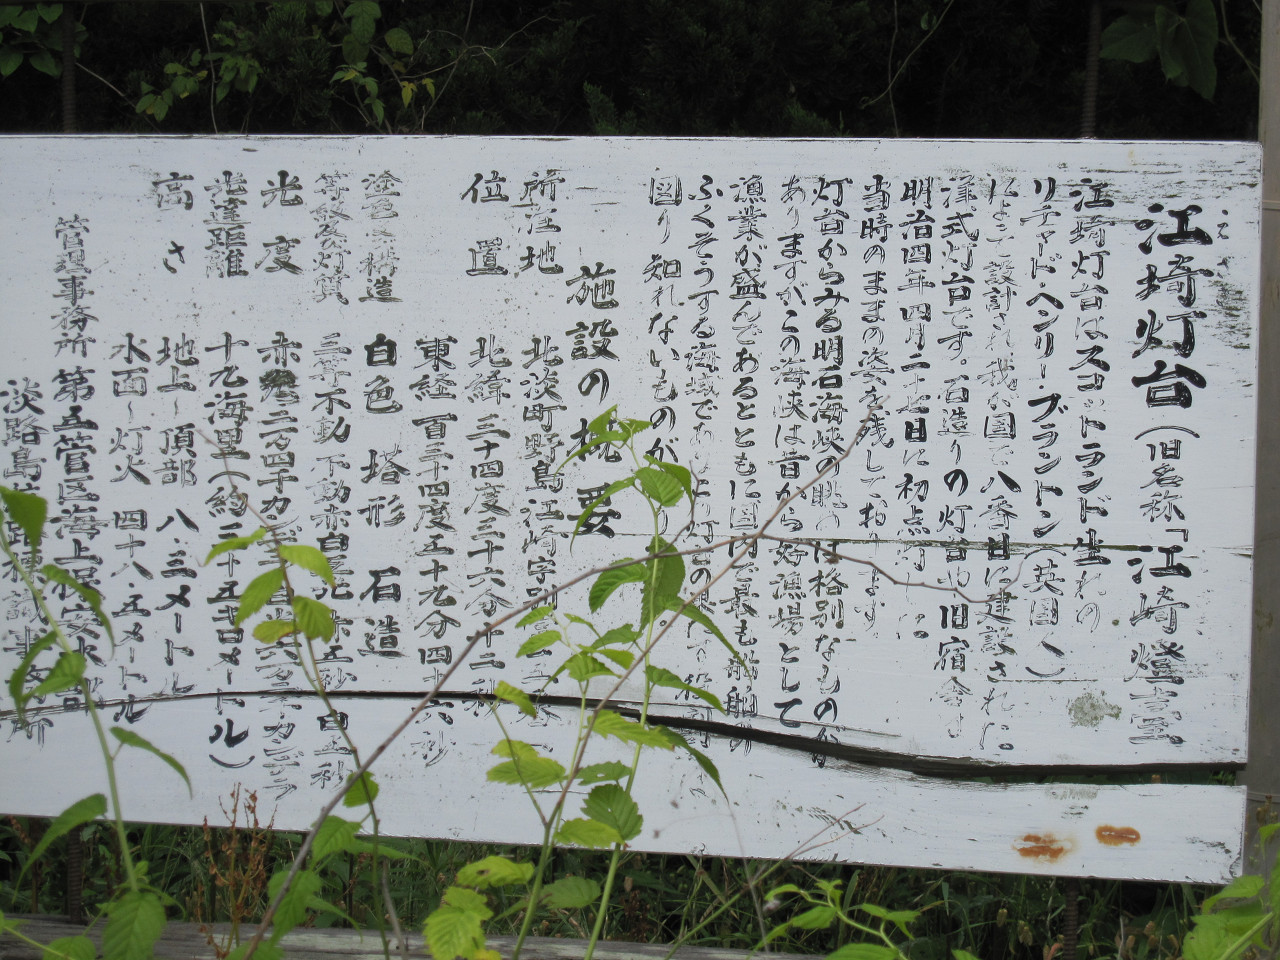 江埼灯台(旧名称「江崎燈台」
江埼灯台はスコットランド生れの
リチャード・ヘンリー・ブラントン(英国人)
によって設計され我が国で八番目に建設された
洋式灯台です。石造りの灯台や旧宿舎は
明治四年四月二十七日に初点灯
当時のままの姿を残しております。
灯台からみる明石海峡の眺めは格別なものが
ありますがこの海峡は昔から好漁場として
漁業が盛んであるとともに国内で最も船舶の
ふくそうする海域であり
図り知れないものが
施設の概要
所在地 北淡町野島江崎字
位置 北緯 三十四度三十六分十二秒
東経 百三十四度五十九分四十六秒
塗色及構造 白色 塔形 石造
等級及灯質 三等不動 不動赤白 赤五秒 白五秒
光度 赤 二万四千カンデラ
光達距離 十九海里(約三十五キロメートル)
高さ 地上〜頂部 八.三メートル
水面〜灯火 四十八.五メートル
管理事務所 第五管区海上保安本部
淡路島 事務所